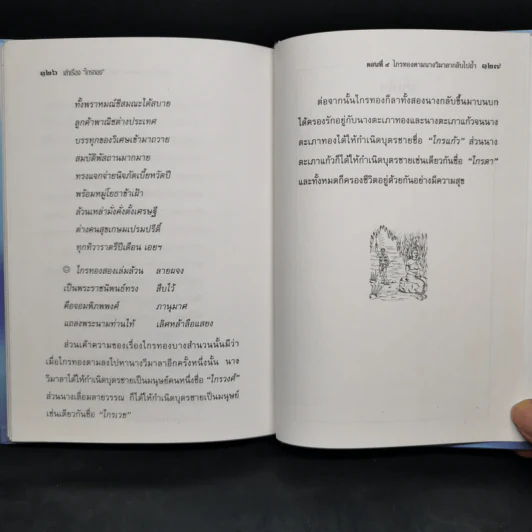 ๑๒๖ เล่าเรื่อง "ไกรทอง"
ทั้งพราหมณ์ชีสมณะได้สบาย
ลูกค้าพาณิชต่างประเทศ
บรรทุกของวิเศษเข้ามาถวาย
สมบัติพัสถานมากมาย
ทรงแจกจ่ายนิจภัตเบี้ยหวัดปี
พร้อมหมู่โยธาข้าเฝ้า
ล้วนเหล่ามั่งคั่งตั้งเศรษฐี
ต่างคนสุขเกษมเปรมปรีดิ์
ทุกทิวาราตรีปีเดือน เอยฯ
ไกรทองสองเล่มล้วน ลายผจง
เป็นพระราชนิพนธ์ทรง สืบไว้
คือจอมพิภพพงศ์ ภาณุมาศ
แถลงพระนามท่านไท้ เลิศหล้าลือแสยง
ส่วนเค้าความของเรื่องไกรทองบางสำนวนนั้นมีว่า
เมื่อไกรทองตามลงไปหานางวิมาลาอีกครั้งหนึ่งนั้น นาง
วิมาลาได้ให้กำเนิดบุตรชายเป็นมนุษย์คนหนึ่งชื่อ "ไกรวงศ์"
ส่วนนางเลื่อมลายวรรณ ก็ได้ให้กำเนิดบุตรชายเป็นมนุษย์
เช่นเดียวกันชื่อ "ไกรเวช"
ตอนที่ ๙ ไกรทองตามนางวิมาลากลับไปถ้ำ ๑๒๗
ต่อจากนั้นไกรทองก็ลาทั้งสองนางกลับขึ้นมาบนบก
ได้ครองรักอยู่กับนางตะเภาทองและนางตะเภาแก้วจนนาง
ตะเภาทองได้ให้กำเนิดบุตรชายชื่อ "ไกรแก้ว" ส่วนนาง
ตะเภาแก้วก็ได้ให้กำเนิดบุตรชายเช่นเดียวกันชื่อ "ไกรดา"
และทั้งหมดก็ครองชีวิตอยู่ด้วยกันอย่างมีความสุข